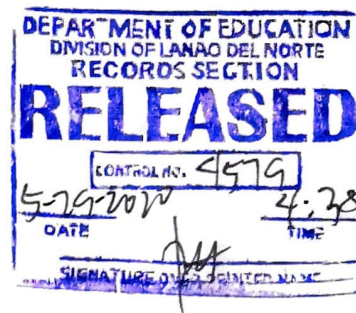 DEPARTMENT OF EDUCATION
DIVISION OF LANAO DEL NORTE
RECORDS SECTION
RELEASED
CONTROL NO. 4579
5-29-2020 4:38
DATE TIME
SIGNATURE OVER PRINTED NAME